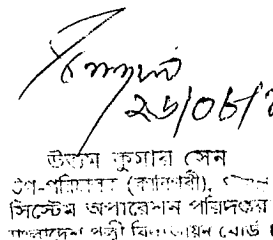 ২৬/০৮/
উত্তম কুমার সেন
উপ-পরিচালক (কারিগরী),
সিস্টেম অপারেশন পরিদপ্তর
বাংলাদেশ পল্লী বিদ্যুতায়ন বোর্ড